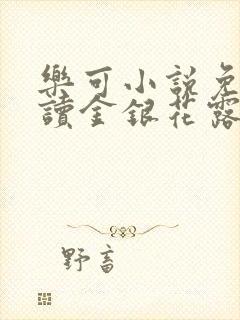 樂可小說免
讀金銀花露
野畜